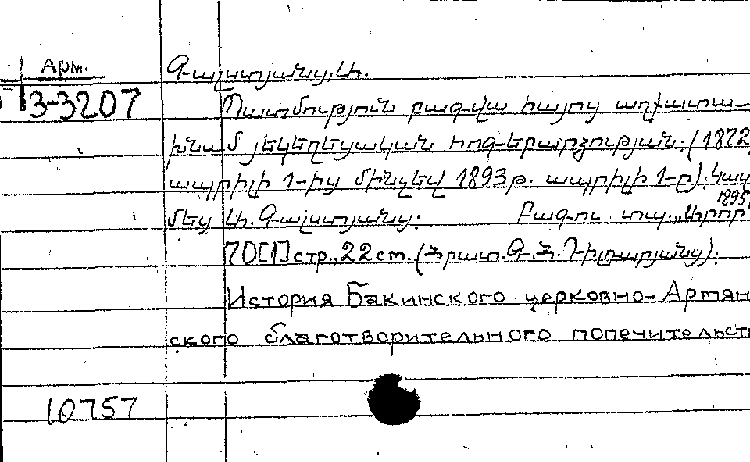 Арм.
3-3207
Գալստյանց, Ա.
Պատմություն բագվա հայոց աղխատա-
խնամ յեկեղեցական հոգեբարձության. (1872
ապրիլի 1-ից մինչեվ 1893թ. ապրիլի 1-ը). Կազ
մեց Ա. Գալստյանց. Բագու. տպ. „Արոր
1895
70[1] стр., 22 см. (Հրատ. Գ. Հ.
История Бакинского церковно-Армян
ского благотворительного попечительст
10757